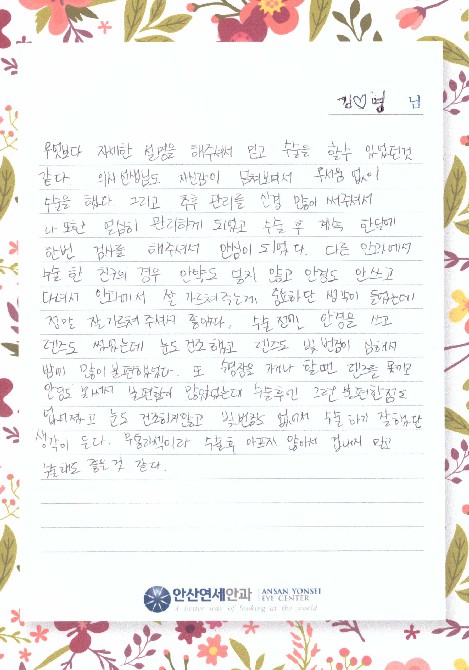 김♡명 님
무엇보다 자세한 설명을 해주셔서 믿고 수술을 할수 있었던것
같다 의사선생님도 자신감이 넘쳐보여서 무서움 없이
수술을 했다. 그리고 추후 관리를 신경 많이 써주셔서
나 또한 열심히 관리하게 되었고 수술 후 계속 한달에
한번 검사를 해주셔서 안심이 되었다. 다른 안과에서
수술 한 친구의 경우 안약도 넣지 않고 안경도 안쓰고
다녀서 안과에서 잘 가르쳐주는게 생각이 들었는데
정말 잘 가르쳐 주셔서 좋았다. 수술 전엔 안경을 쓰고
렌즈도 꼈었는데 눈도 건조하고 렌즈도 빛 번짐이 심해서
밤에 많이 불편하였었다. 또 를 가거나 할때 렌즈를 못끼고
안경도 못써서 불편함이 많았었는데 수술후엔 그런 불편한점도
없어졌고 눈도 건조하지않고 빛번짐도 없어서 수술 하기 잘했단
생각이 든다. 무통라섹이라 수술후 아프지 않아서 겁내지 말고
수술해도 좋을것 같다.
안산연세안과 ANSAN YONSEI
EYE CENTER
A better way of Looking at the world